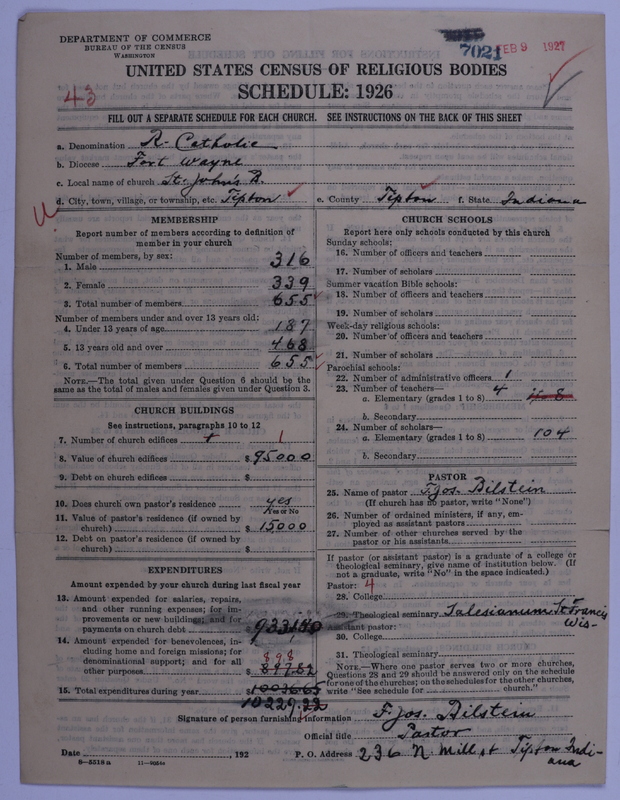 DEPARTMENT OF COMMERCE
BUREAU OF THE CENSUS
WASHINGTON
7021
FEB 9 1927
UNITED STATES CENSUS OF RELIGIOUS BODIES
SCHEDULE: 1926
43
FILL OUT A SEPARATE SCHEDULE FOR EACH CHURCH. SEE INSTRUCTIONS ON THE BACK OF THIS SHEET
a. Denomination R. Catholic
b. Diocese Fort Wayne
c. Local name of church St. John's
d. City, town, village, or township, etc. Tipton e. County Tipton f. State Indiana
MEMBERSHIP
Report number of members according to definition of
member in your church
Number of members, by sex:
1. Male 316
2. Female 339
3. Total number of members 655
Number of members under and over 13 years old:
4. Under 13 years of age 187
5. 13 years old and over 468
6. Total number of members 655
NOTE.—The total given under Question 6 should be the
same as the total of males and females given under Question 3.
CHURCH BUILDINGS
See instructions, paragraphs 10 to 12
7. Number of church edifices 1
8. Value of church edifices $ 95000
9. Debt on church edifices $
10. Does church own pastor's residence yes
Yes or No
11. Value of pastor's residence (if owned by
church) $ 15000
12. Debt on pastor's residence (if owned by
church) $
EXPENDITURES
Amount expended by your church during last fiscal year
13. Amount expended for salaries, repairs,
and other running expenses; for im-
provements or new buildings; and for
payments on church debt
14. Amount expended for benevolences, in-
cluding home and foreign missions; for
denominational support; and for all
other purposes $ 898
897.82
15. Total expenditures during year $
10229.22
CHURCH SCHOOLS
Report here only schools conducted by this church
Sunday schools:
16. Number of officers and teachers
17. Number of scholars
Summer vacation Bible schools:
18. Number of officers and teachers
19. Number of scholars
Week-day religious schools:
20. Number of officers and teachers
21. Number of scholars
Parochial schools:
22. Number of administrative officers 1
23. Number of teachers—
a. Elementary (grades 1 to 8) 4
b. Secondary
24. Number of scholars—
a. Elementary (grades 1 to 8) 104
b. Secondary
PASTOR
25. Name of pastor F. Jos. Bilstein
(If church has no pastor, write "None")
26. Number of ordained ministers, if any, em-
ployed as assistant pastors
27. Number of other churches served by the
pastor or his assistants
If pastor (or assistant pastor) is a graduate of a college or
theological seminary, give name of institution below. (If
not a graduate, write "No" in the space indicated.)
Pastor: 4
28. College
29. Theological seminary Salesianum St. Francis
Wis-
Assistant pastor:
30. College
31. Theological seminary
NOTE.—Where one pastor serves two or more churches,
Questions 28 and 29 should be answered only on the schedule
for one of the churches; on the schedules for the other churches,
write "See schedule for church."
Signature of person furnishing information F. Jos. Bilstein
Official title Pastor
Date , 192 P. O. Address 236 N. Mill st Tipton Indi-
ana
8—5518 a